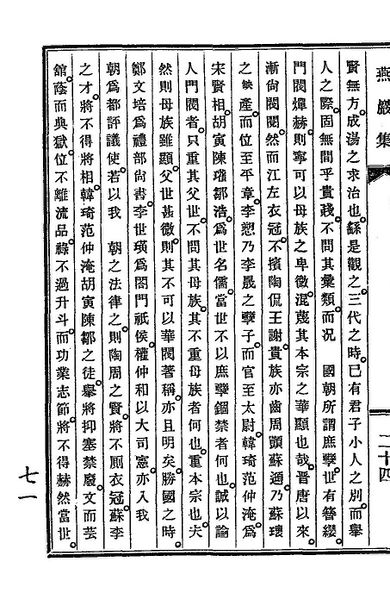 燕巖集　二十四
賢無方。成湯之求治也。繇是觀之。三代之時。已有君子小人之別。而擧
人之際。固無間乎貴賤。不問其彙類。而況　國朝所謂庶孽。世有簪纓。
門閥燀赫。則寧可以母族之卑微。混蔑其本宗之華顯也哉。晉唐以來。
漸尙閥閱。然而江左衣冠。不擯陶侃。王謝貴族。亦齒周顗。蘇頲乃蘇瓌
之蛈產。而位至平章。李愬乃李晟之孽子。而官至太尉。韓琦范仲淹。爲
宋賢相。胡寅陳瓘鄒浩。爲世名儒。當世不以庶孽錮禁者何也。誠以論
人門閥者。只重其父世。不問其母族。其不重母族者何也。重本宗也。夫
然則母族雖顯。父世甚微。則其不可以華閥著稱。亦且明矣。勝國之時。
鄭文培爲禮部尙書。李世璜爲閤門祗侯。權仲和以大司憲。亦入我
朝。爲都評議使。若以我　朝之法律之。則陶周之賢。將不厠衣冠。蘇李
之才。將不得將相。韓琦范仲淹胡寅陳鄒之徒。擧將抑塞禁廢。文而芸
館。蔭而典獄。位不離流品。祿不過升斗。而功業志節。將不得赫然當世。
七一